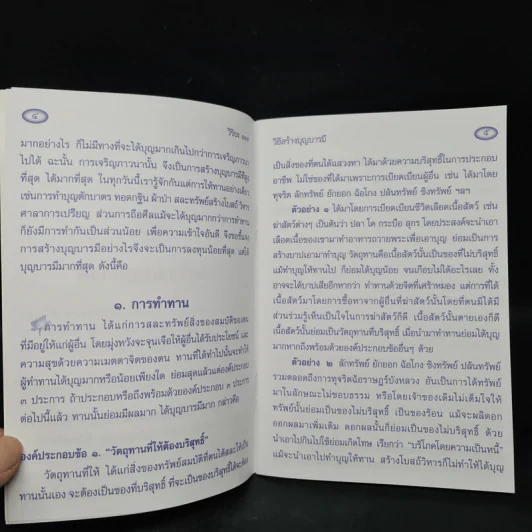 ๔
มากอย่างไร ก็ไม่มีทางที่จะได้บุญมากเกินไปกว่าการเจริญภาวนา
ไปได้ ฉะนั้น การเจริญภาวนานั้น จึงเป็นการสร้างบุญบารมีที่สูง
ที่สุด ได้มากที่สุด ในทุกวันนี้เรารู้จักกันแต่การให้ทานอย่างเดียว
เช่นการทำบุญตักบาตร ทอดกฐิน ผ้าป่า สละทรัพย์สร้างโบสถ์ วิหาร
ศาลาการเปรียญ ส่วนการถือศีลแม้จะได้บุญมากกว่าการทำทาน
ก็ยังมีการทำกันเป็นส่วนน้อย เพื่อความเข้าใจอันดี จึงขอชี้แจง
การสร้างบุญบารมีอย่างไรจึงจะเป็นการลงทุนน้อยที่สุด แต่ได้
บุญบารมีมากที่สุด ดังนี้คือ
๑. การทำทาน
การทำทาน ได้แก่การสละทรัพย์สิ่งของสมบัติของตน
ที่มีอยู่ให้แก่ผู้อื่น โดยมุ่งหวังจะจุนเจือให้ผู้อื่นได้รับประโยชน์ และ
ความสุขด้วยความเมตตาจิตของตน ทานที่ได้ทำไปนั้นจะทำให้
ผู้ทำทานได้บุญมากหรือน้อยเพียงใด ย่อมสุดแล้วแต่องค์ประกอบ
๓ ประการ ถ้าประกอบหรือถึงพร้อมด้วยองค์ประกอบ ๓ ประการ
ต่อไปนี้แล้ว ทานนั้นย่อมมีผลมาก ได้บุญบารมีมาก กล่าวคือ
องค์ประกอบข้อ ๑. "วัตถุทานที่ให้ต้องบริสุทธิ์"
วัตถุทานที่ให้ ได้แก่สิ่งของทรัพย์สมบัติที่ตนได้สละให้เป็น
ทานนั้นเอง จะต้องเป็นของที่บริสุทธิ์ ที่จะเป็นของบริสุทธิ์ได้จะต้อง
วิธีสร้างบุญบารมี
๕
เป็นสิ่งของที่ตนได้แสวงหา ได้มาด้วยความบริสุทธิ์ในการประกอบ
อาชีพ ไม่ใช่ของที่ได้มาเพราะการเบียดเบียนผู้อื่น เช่น ได้มาโดย
ทุจริต ลักทรัพย์ ยักยอก ฉ้อโกง ปล้นทรัพย์ ชิงทรัพย์ ฯลฯ
ตัวอย่าง ๑ ได้มาโดยการเบียดเบียนชีวิตเลือดเนื้อสัตว์ เช่น
ฆ่าสัตว์ต่างๆ เป็นต้นว่า ปลา โค กระบือ สุกร โดยประสงค์จะนำเอา
เลือดเนื้อของเขามาทำอาหารถวายพระเพื่อเอาบุญ ย่อมเป็นการ
สร้างบาปเอามาทำบุญ วัตถุทานคือเนื้อสัตว์นั้นเป็นของที่ไม่บริสุทธิ์
แม้ทำบุญให้ทานไป ก็ย่อมได้บุญน้อย จนเกือบไม่ได้อะไรเลย ทั้ง
อาจจะได้บาปเสียอีกหากว่า ทำทานด้วยจิตที่เศร้าหมอง แต่การที่ได้
เนื้อสัตว์มาโดยการซื้อหาจากผู้อื่นที่ฆ่าสัตว์นั้นโดยที่ตนมิได้มี
ส่วนร่วมรู้เห็นเป็นใจในการฆ่าสัตว์ก็ดี เนื้อสัตว์นั้นตายเองก็ดี
เนื้อสัตว์นั้นย่อมเป็นวัตถุทานที่บริสุทธิ์ เมื่อนำมาทำทานย่อมได้บุญ
มากหากถึงพร้อมด้วยองค์ประกอบข้ออื่นๆ ด้วย
ตัวอย่าง ๒ ลักทรัพย์ ยักยอก ฉ้อโกง ชิงทรัพย์ ปล้นทรัพย์
รวมตลอดถึงการทุจริตฉ้อราษฎร์บังหลวง อันเป็นการได้ทรัพย์
มาในลักษณะไม่ชอบธรรม หรือโดยเจ้าของเดิมไม่เต็มใจให้
ทรัพย์นั้นย่อมเป็นของไม่บริสุทธิ์ เป็นของร้อน แม้จะผลิดอก
ออกผลมาเพิ่มเติม ดอกผลนั้นก็ย่อมเป็นของไม่บริสุทธิ์ ด้วย
นำเอาไปกินไปใช้ย่อมเกิดโทษ เรียกว่า "บริโภคโดยความเป็นหนี้"
แม้จะนำเอาไปทำบุญให้ทาน สร้างโบสถ์วิหารก็ไม่ทำให้ได้บุญ